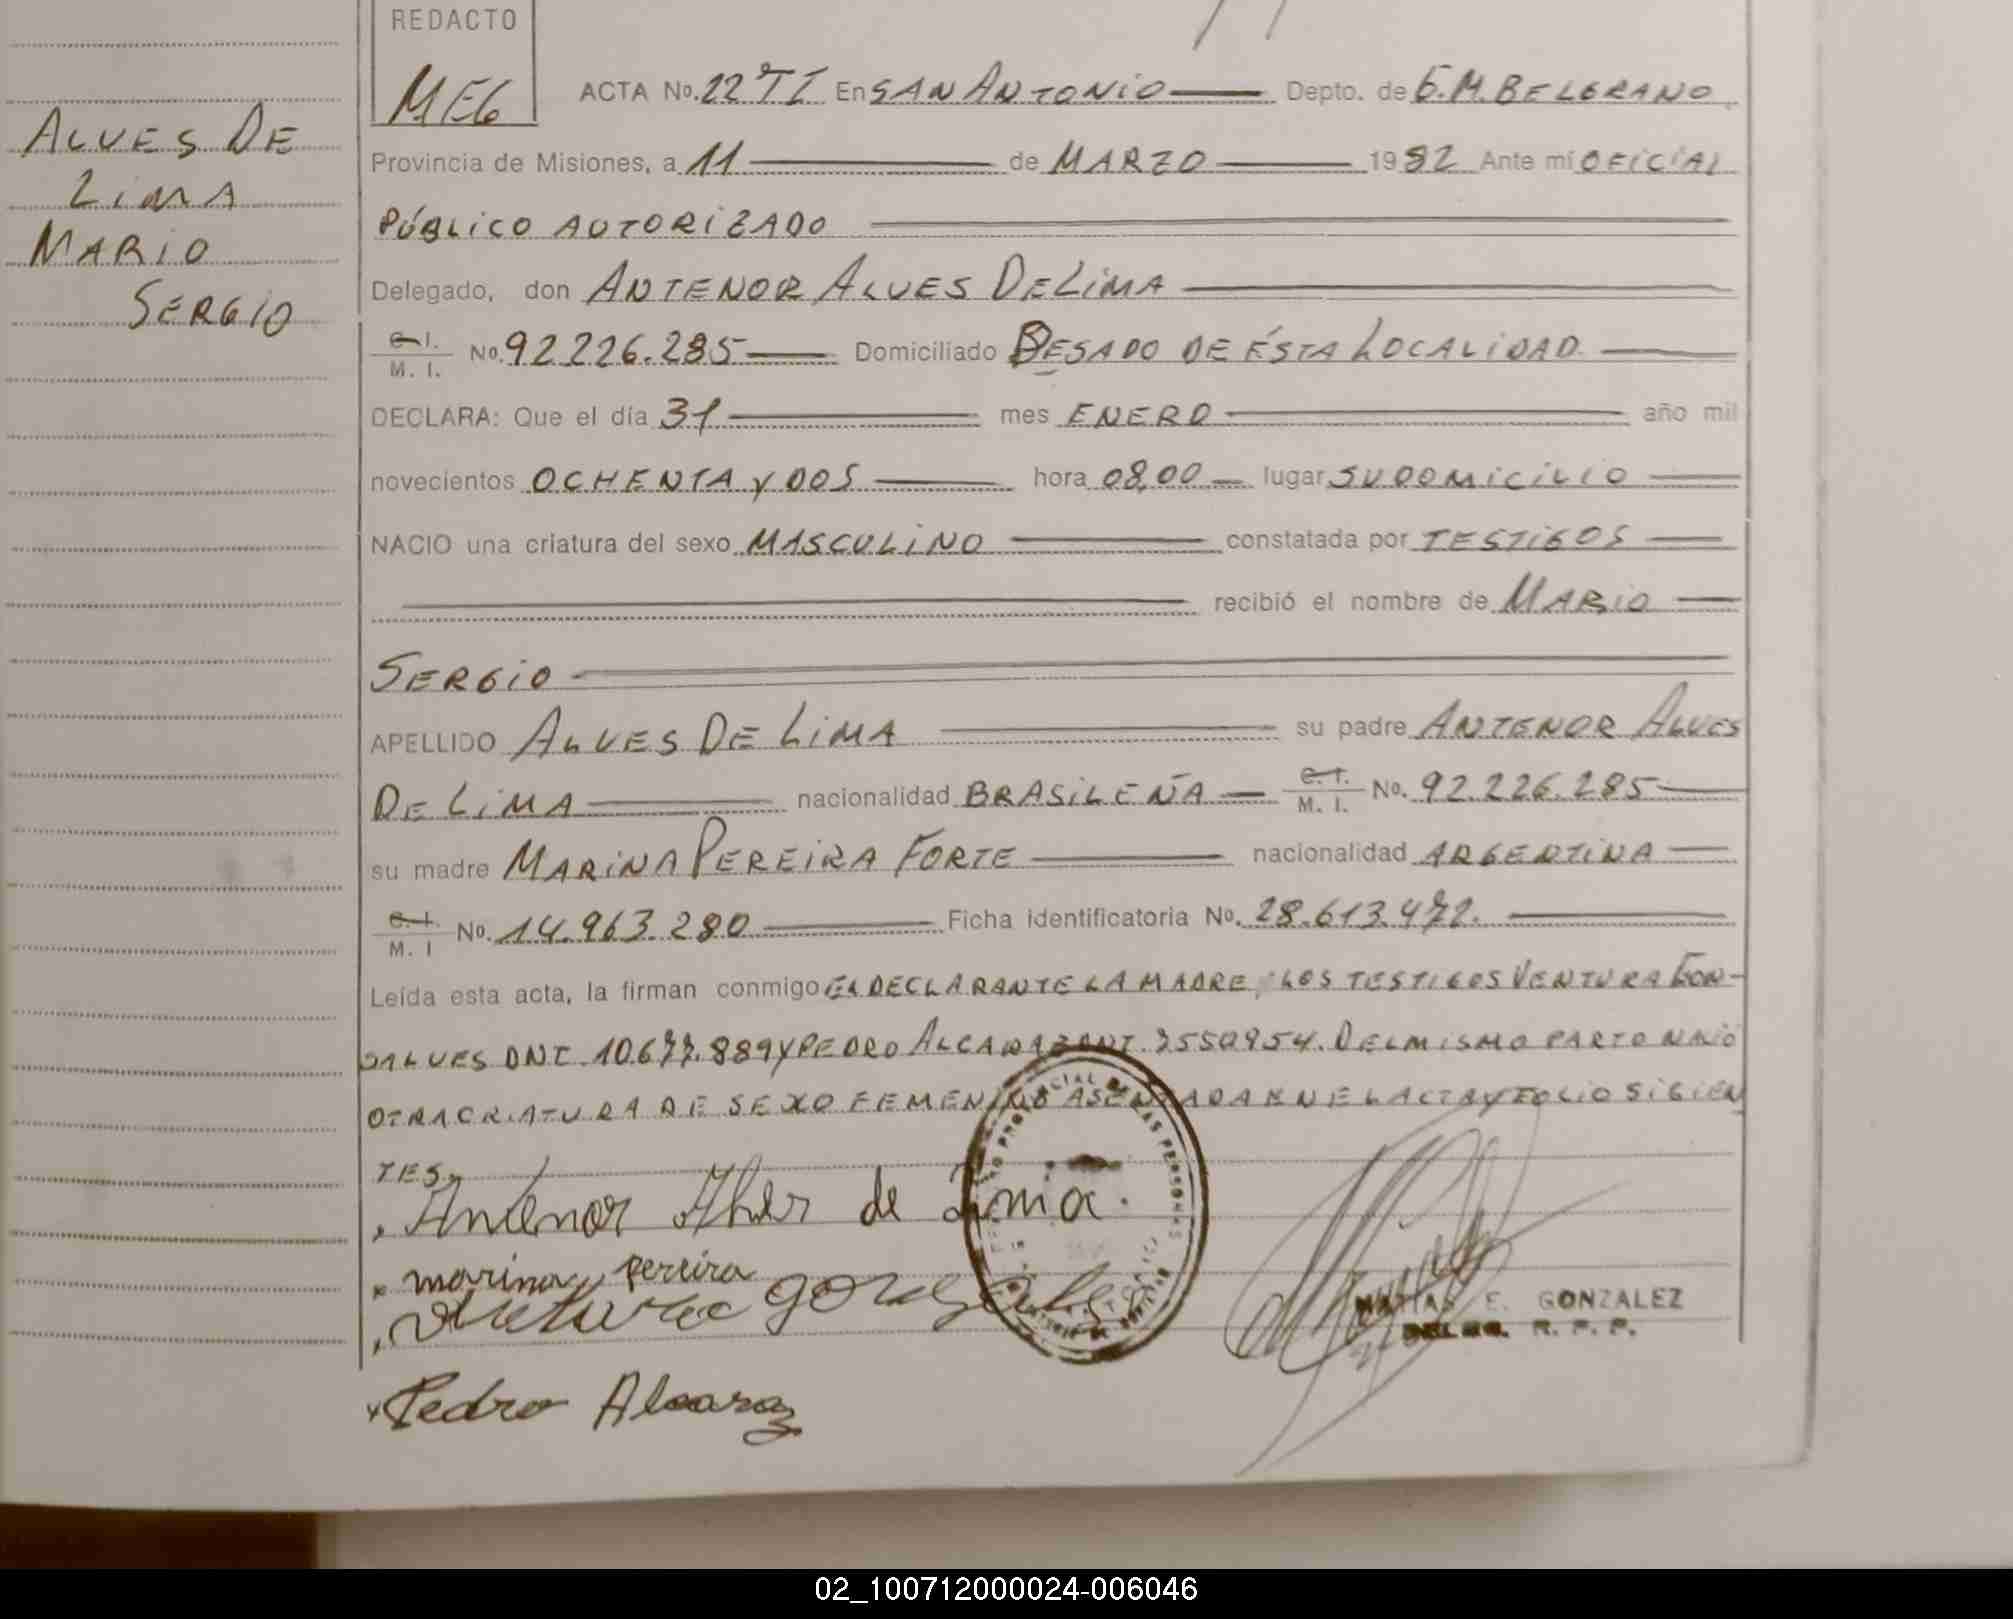 REDACTO
MEG
ACTA No. 22 TI En SAN ANTONIO Depto. de G.M. BELGRANO
ALVES DE
LIMA
MARIO
SERGIO
Provincia de Misiones, a 11 de MARZO 1982 Ante mí OFICIAL
PÚBLICO AUTORIZADO
Delegado, don ANTENOR ALVES DE LIMA
C. I.
M. I. No. 92.226.285 Domiciliado DE ÉSTA LOCALIDAD.
DECLARA: Que el día 31 mes ENERO año mil
novecientos OCHENTA Y DOS hora 08,00 lugar SU DOMICILIO
NACIO una criatura del sexo MASCULINO constatada por TESTIGOS
recibió el nombre de MARIO
SERGIO
APELLIDO ALVES DE LIMA su padre ANTENOR ALVES
DE LIMA nacionalidad BRASILEÑA C. I.
M. I. No. 92.226.285
su madre MARINA PEREIRA FORTE nacionalidad ARGENTINA
C. I.
M. I No. 14.963.280 Ficha identificatoria No. 28.613.472.
Leída esta acta, la firman conmigo EL DECLARANTE LA MADRE, LOS TESTIGOS VENTURA GON-
SALVES DNI. 10.677.889 Y PEDRO ALCARAZ DNI. 7550954. DEL MISMO PARTO NACIÓ
OTRA CRIATURA DE SEXO FEMENINO ASENTADA EN EL ACTA Y FOLIO SIGIEN
TES
Antenor Alves de Lima.
marina pereira
Ventura gonzales
MATIAS E. GONZALEZ
DELEG. R. P. P.
Pedro Alcaraz
02_100712000024-006046